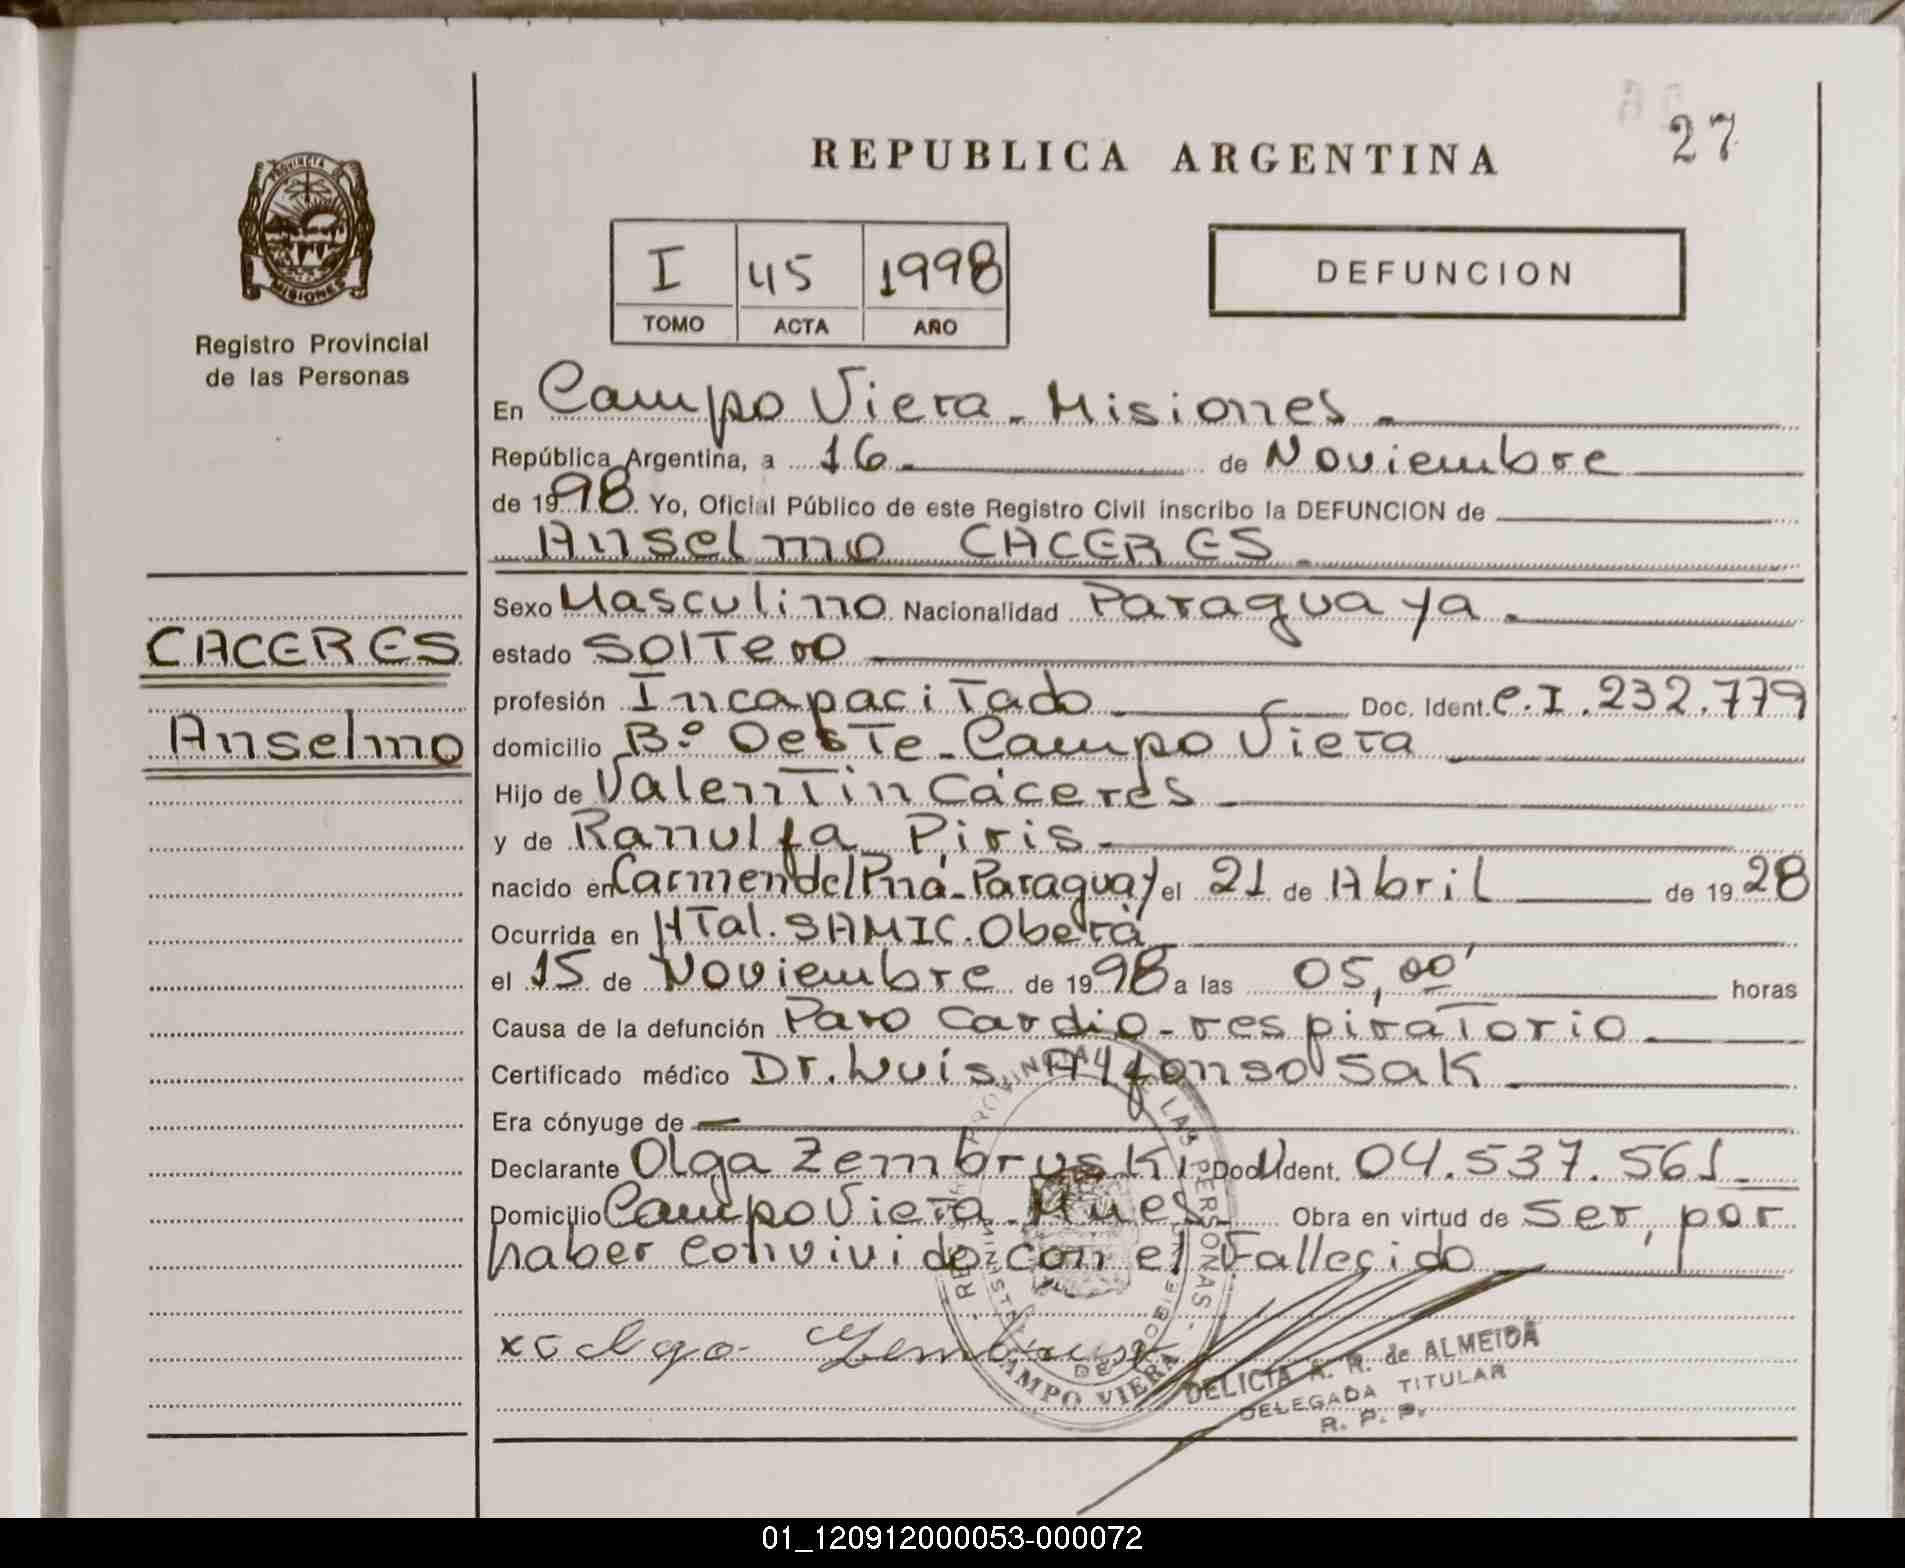 27
REPUBLICA ARGENTINA
PROVINCIA DE
MISIONES
Registro Provincial
de las Personas
I 45 1998
TOMO ACTA AÑO
DEFUNCION
En Campo Viera - Misiones -
República Argentina, a 16 - de Noviembre
de 1998 Yo, Oficial Público de este Registro Civil inscribo la DEFUNCION de
Anselmo CACERES -
CACERES
Anselmo
Sexo Masculino Nacionalidad Paraguaya -
estado Soltero
profesión Incapacitado Doc. Ident. C.I. 232.779
domicilio Bº Oeste - Campo Viera
Hijo de Valentin Cáceres -
y de Ranulfa Piris -
nacido en Carmen del Pná - Paraguay el 21 de Abril de 1928
Ocurrida en HTal. SAMIC. Oberá
el 15 de Noviembre de 1998 a las 05,00' horas
Causa de la defunción Paro Cardio-respiratorio
Certificado médico Dr. Luis Alfonso Sak
Era cónyuge de —
Declarante Olga Zembruski Doc. Ident. 04.537.561
Domicilio Campo Viera - Mnes Obra en virtud de ser, por
haber convivido con el Fallecido
DELICIA A. R. de ALMEIDA
DELEGADA TITULAR
R. P. P.
CAMPO VIERA
01_120912000053-000072